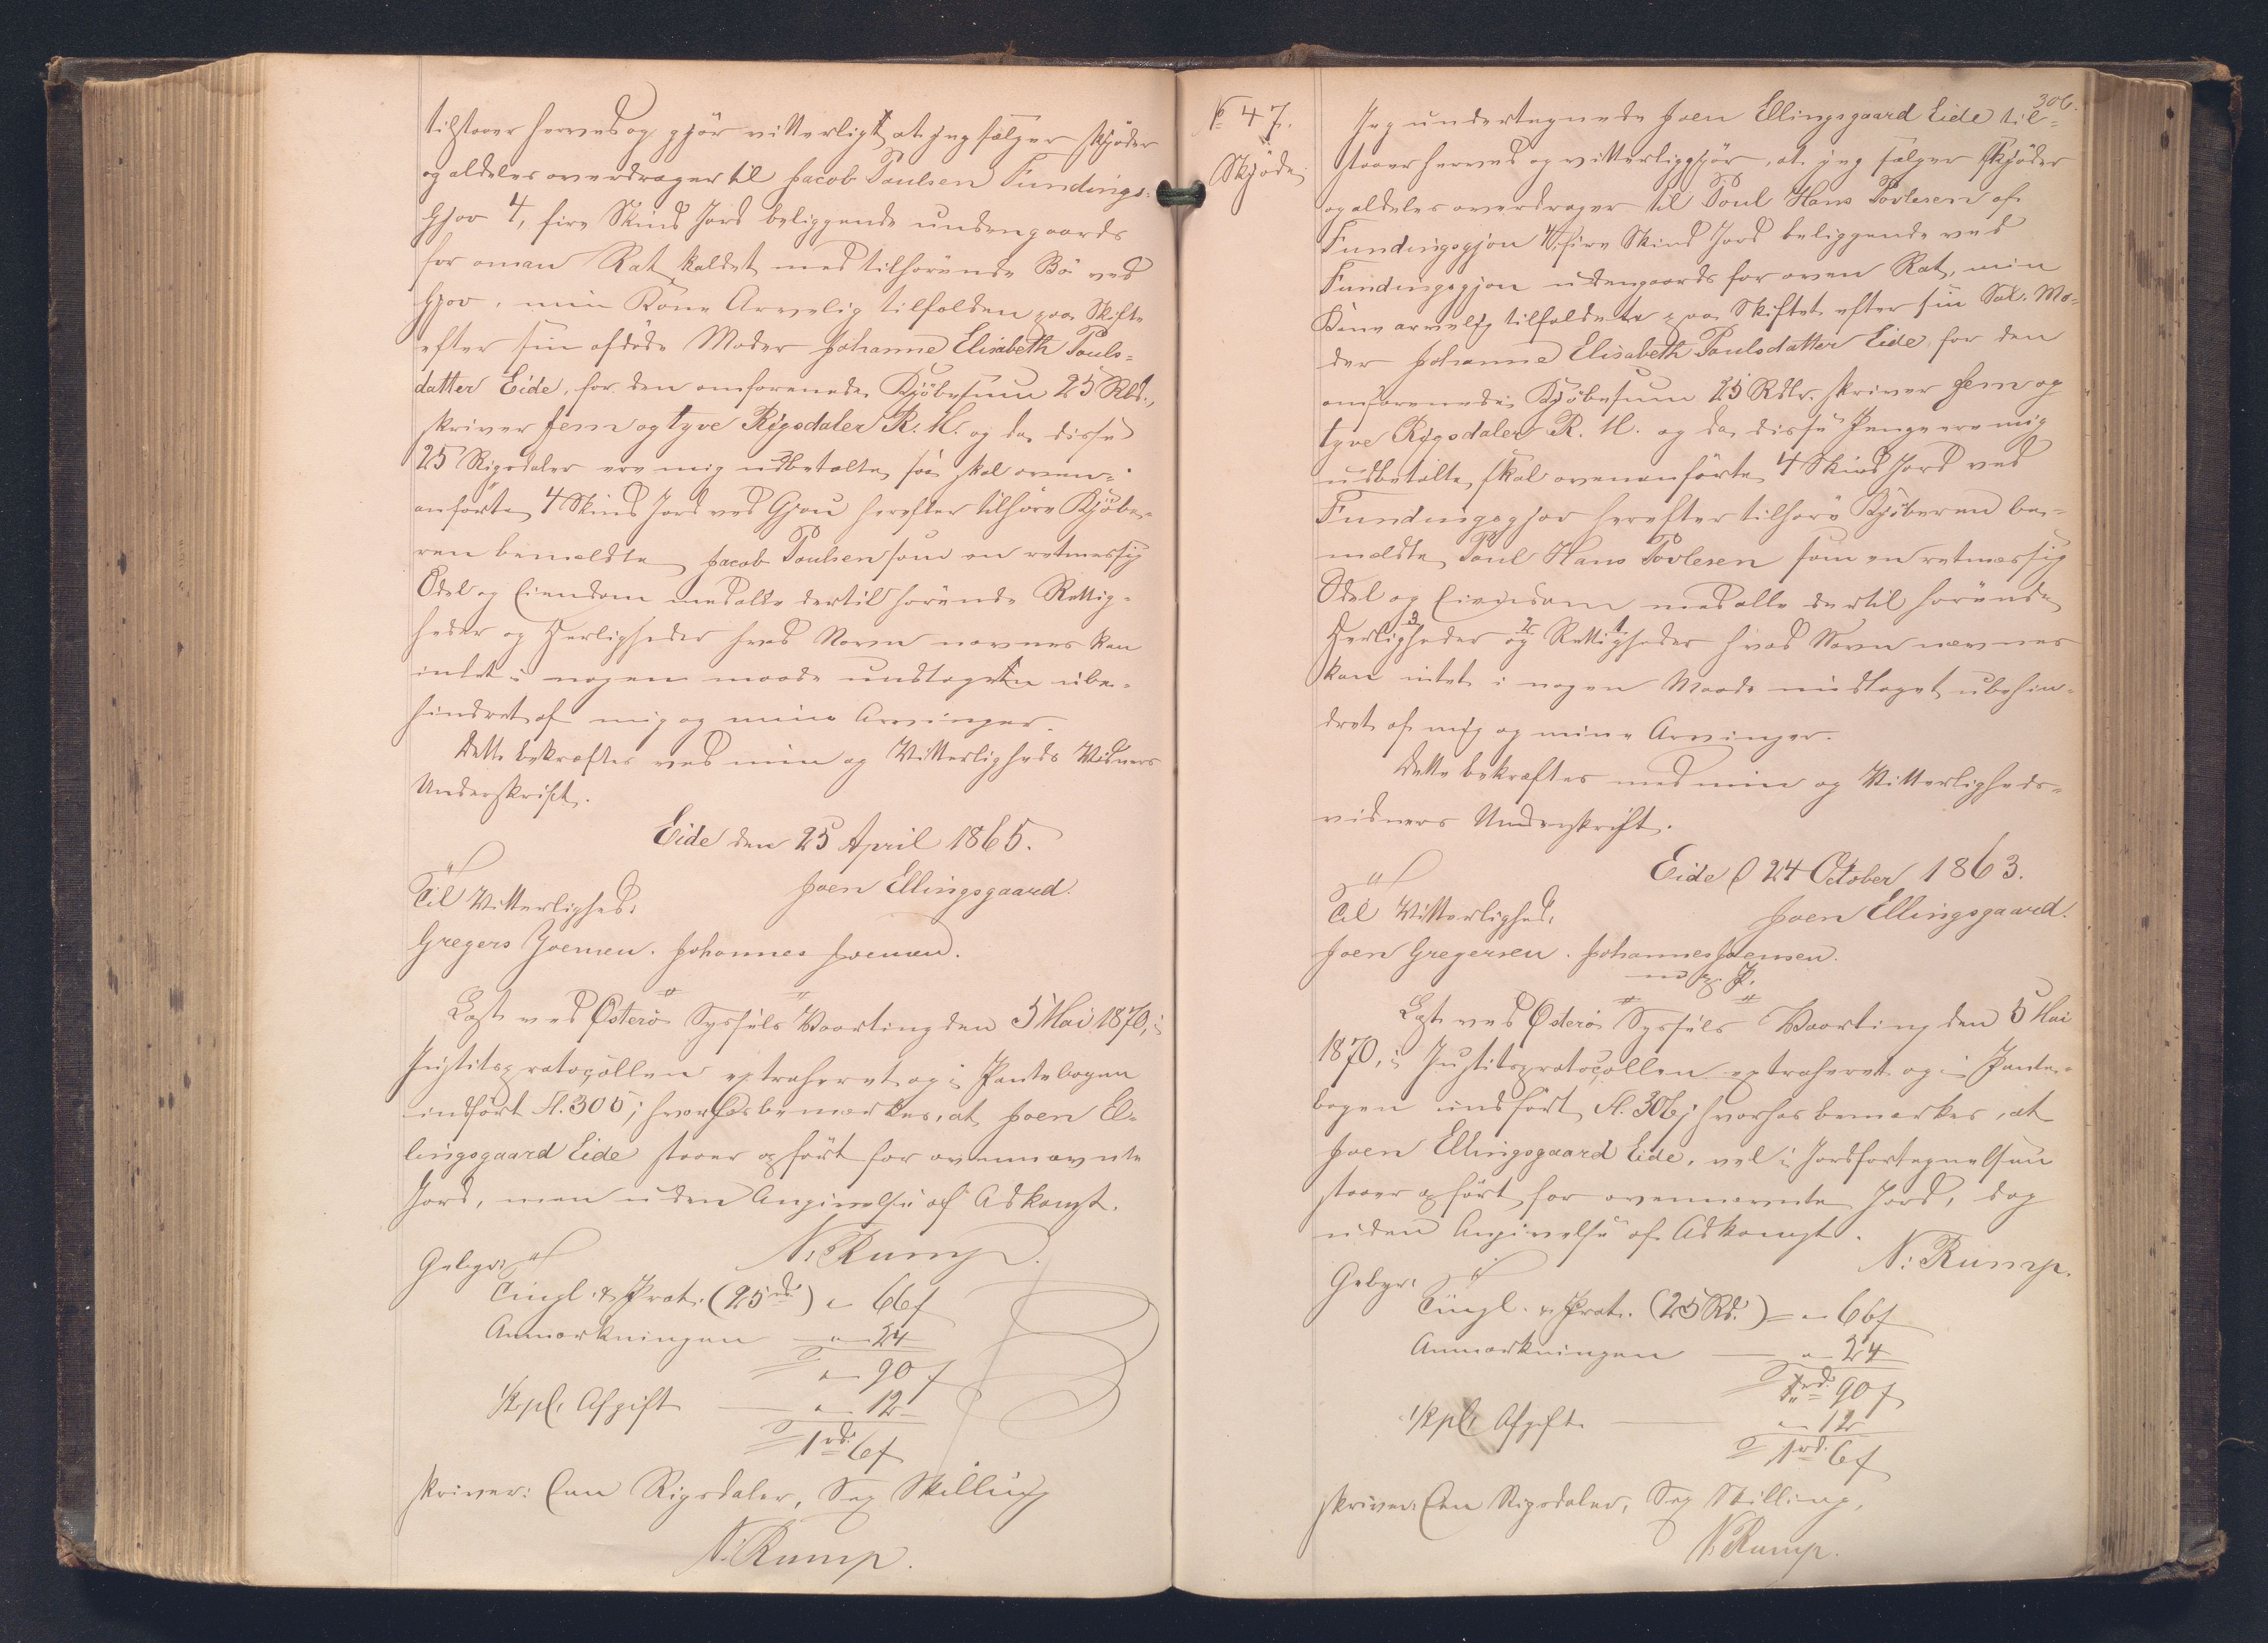 tilstaaer herved og gjør vitterligt at jeg sælger skjøder
og aldeles overdrager til Jacob Poulsen Fundings-
Gjov 4, fire Skind Jord beliggende undengaards
for oman Rat kaldet med tilhørende Bø ved
Gjov, min Kone Arvelig tilfalden paa Skifte
efter sin afdøde Moder Johanne Elisabeth Pouls-
datter Eide, for den omforenede Kjøbesum 25 Rbd.,
skriver fem og tyve Rigsdaler R. M. og da disse
25 Rigsdaler ere mig udbetalte, saa skal oven-
anførte 4 Skind Jord ved Gjov herefter tilhøre Kjøbe-
ren bemeldte Jacob Poulsen som en retmæssig
Odel og Eiendom med alle dertil hørende Rettig-
heder og Herligheder hvad Navn nævnes kan
intet i nogen maade undtagen ube-
hindret af mig og mine Arvinger.
Dette bekræftes ved min og Vitterligheds Vidners
Underskrift.
Eide den 25 April 1865.
Joen Ellingsgaard.
Til Vitterlighed:
Gregers Joensen. Johannes Joensen.
Læst ved Østerø Syssels Vaarting den 5 Mai 1870, i
Justitsprotocollen extraheret og i Pantebogen
indført fl. 305; hvorhos bemærkes, at Joen El-
lingsgaard Eide staaer opført for ovennævnte
Jord, men uden Angivelse af Adkomst.
N. Rump.
Gebyr:
Tingl. & Prot. (25 rd.) " 66 f
Anmærkningen " 24
" 90 f
1/2 pCt. Afgift " 12
1 rd. 6 f
skriver: Een Rigsdaler, Sex Skilling
N. Rump.
306.
No 47.
Skjøde.
Jeg undertegnede Joen Ellingsgaard Eide til-
staaer herved og vitterliggjør, at jeg sælger skjøder
og aldeles overdrager til Poul Hans Povlesen af
Fundingsgjov 4, fire Skind Jord beliggende ved
Fundingsgjov udengaards for oven Rat, min
Kone arvelig tilfaldete paa Skiftet efter sin Sal. Mo-
der Johanne Elisabeth Paulsdatter Eide for den
omforenede Kjøbesum 25 Rdlr. skriver fem og
tyve Rigsdaler R. M. og da disse Penge ere mig
udbetalte, skal ovenanførte 4 Skind Jord ved
Fundingsgjov herefter tilhøre Kjøberen be-
meldte Poul Hans Povlesen som en retmæssig
Odel og Eiendom med alle dertil hørende
Herligheder og Rettigheder hvad Navn nævnes
kan intet i nogen Maade undtaget ubehin-
dret af mig og mine Arvinger.
Dette bekræftes med min og Vitterligheds-
vidners Underskrift.
Eide d 24 October 1863.
Til Vitterlighed:
Joen Ellingsgaard.
Joen Gregersen. Johannes Joensen.
m. p. P.
Læst ved Østerø Syssels Vaarting den 5 Mai
1870, i Justitsprotocollen extraheret og i Pante-
bogen indført fl. 306; hvorhos bemærkes, at
Joen Ellingsgaard Eide, vel i Jordfortegnelsen
staaer opført for ovennævnte Jord, dog
uden Angivelse af Adkomst.
N. Rump.
Gebyr:
Tingl. & Prot. (25 Rd.) = " 66 f
Anmærkningen " 24
" rd. 90 f
1/2 pCt. Afgift " 12
1 rd. 6 f
skriver: Een Rigsdaler, Sex Skilling,
N. Rump.